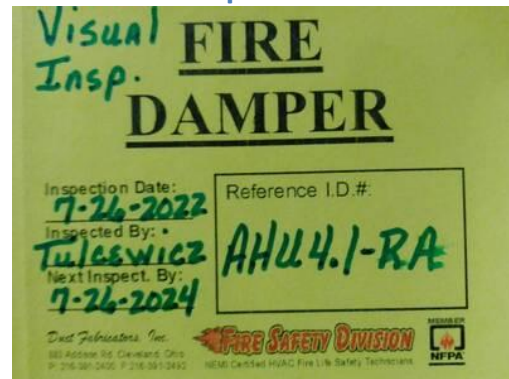 Visual
Insp.
FIRE
DAMPER
Inspection Date:
7-26-2022
Inspected By:
Tulcewicz
Next Inspect. By:
7-26-2024
Reference I.D.#:
AHU4.1-RA
Duct Fabricators, Inc.
883 Addison Rd. Cleveland, Ohio
P: 216-391-2400 F: 216-391-2492
FIRE SAFETY DIVISION
NEMI Certified HVAC Fire Life Safety Technicians
MEMBER
NFPA